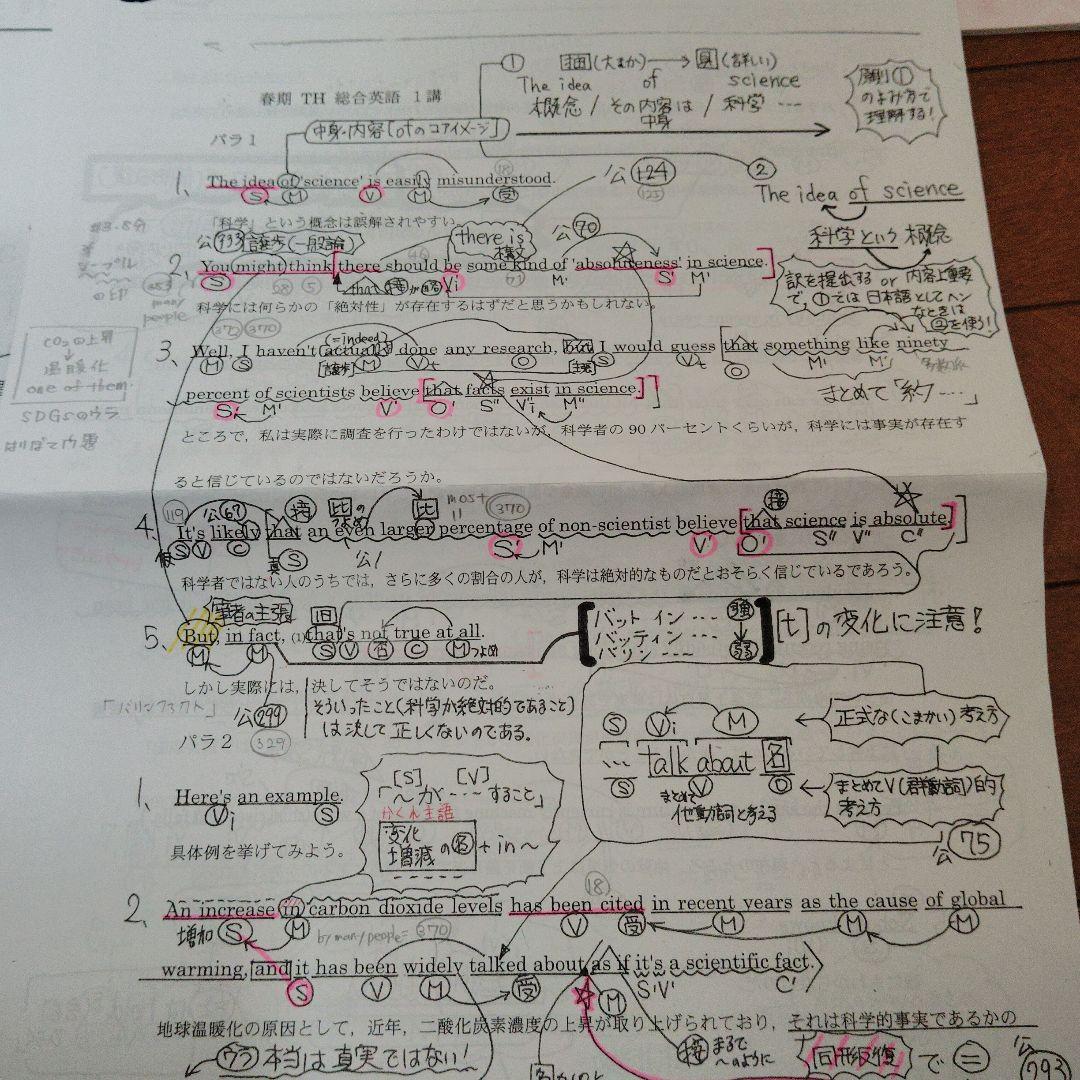 ① 抽(大まか)→具(詳しい)
The idea of science
概念/その内容は/科学…
中身
原則①
のよみ方で
理解する!
春期 TH 総合英語 1 講
中身・内容「ofのコアイメージ」
パラ 1
1、The idea of 'science' is easily misunderstood.
S M V M 受
公 124
②
The idea of science
科学という概念
「科学」という概念は誤解されやすい。
公 933 譲歩(一般論)
there is
構文
公 70
2、You might think [there should be some kind of 'absoluteness' in science.]
S Vi M' S' M'
訳を提出する or 内容上重要
で、①では日本語としてヘン
なときは
②を使う!
科学には何らかの「絶対性」が存在するはずだと思うかもしれない。
many
people
372 370
CO₂の上昇
↓
温暖化
one of them.
SDGsのウラ
(=indeed)
3、Well, I haven't actually done any research, but I would guess [that something like ninety
M S M Vt O S Vt O M' M'
[譲歩] [主張]
まとめて「約…」
percent of scientists believe [that facts exist in science.]]
S' M' V' O' S" V"i M"
ところで，私は実際に調査を行ったわけではないが，科学者の 90 パーセントくらいが，科学には事実が存在す
ると信じているのではないだろうか。
119 公 69 接 比のつよめ 比 most 370 接
4、It's likely that an even larger percentage of non-scientist believe [that science is absolute.]]
仮S V C 真S 公1 S' M' V' O' S" V" C"
科学者ではない人のうちでは，さらに多くの割合の人が，科学は絶対的なものだとおそらく信じているであろう。
筆者の主張
5、But, in fact, (1)that's not true at all.
M M S V 否 C M つよめ
バット イン … 強
バッティン … ↓
バリン … 弱
[t]の変化に注意!
しかし実際には，決してそうではないのだ。
「バリンファクト」
公 299
329
そういったこと(科学が絶対的であること)
は決して正しくないのである。
パラ 2
S Vi M
… talk about 名
S V O
まとめて
他動詞と考える
←正式な(こまかい)考え方
←まとめてV(群動詞)的
考え方
公 75
1、Here's an example.
Vi S
具体例を挙げてみよう。
[S] [V]
「～が…すること」
かくれ主語
変化
増減の名+in～
2、An increase in carbon dioxide levels has been cited in recent years as the cause of global
増加 S M V 受 M M M
18
by many people= 370
warming, and it has been widely talked about as if it's a scientific fact.
S V M 受 M S'V' C'
地球温暖化の原因として，近年，二酸化炭素濃度の上昇が取り上げられており，それは科学的事実であるかの
ウラ 本当は真実ではない!
接 まるで
～のように
同形反復 で =
公 293